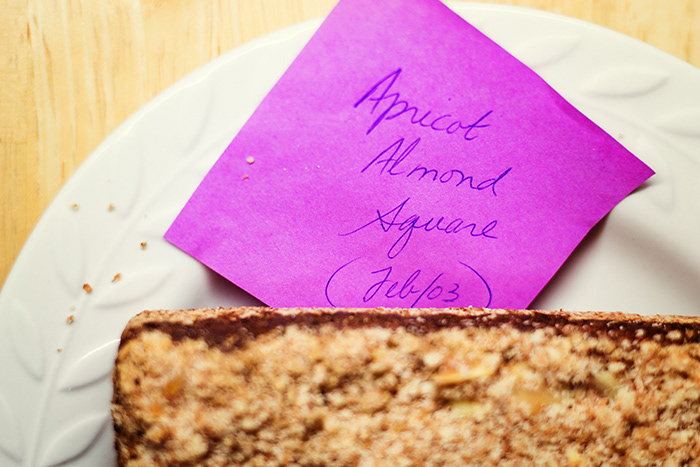 Apricot
Almond
Square
(Feb/03)